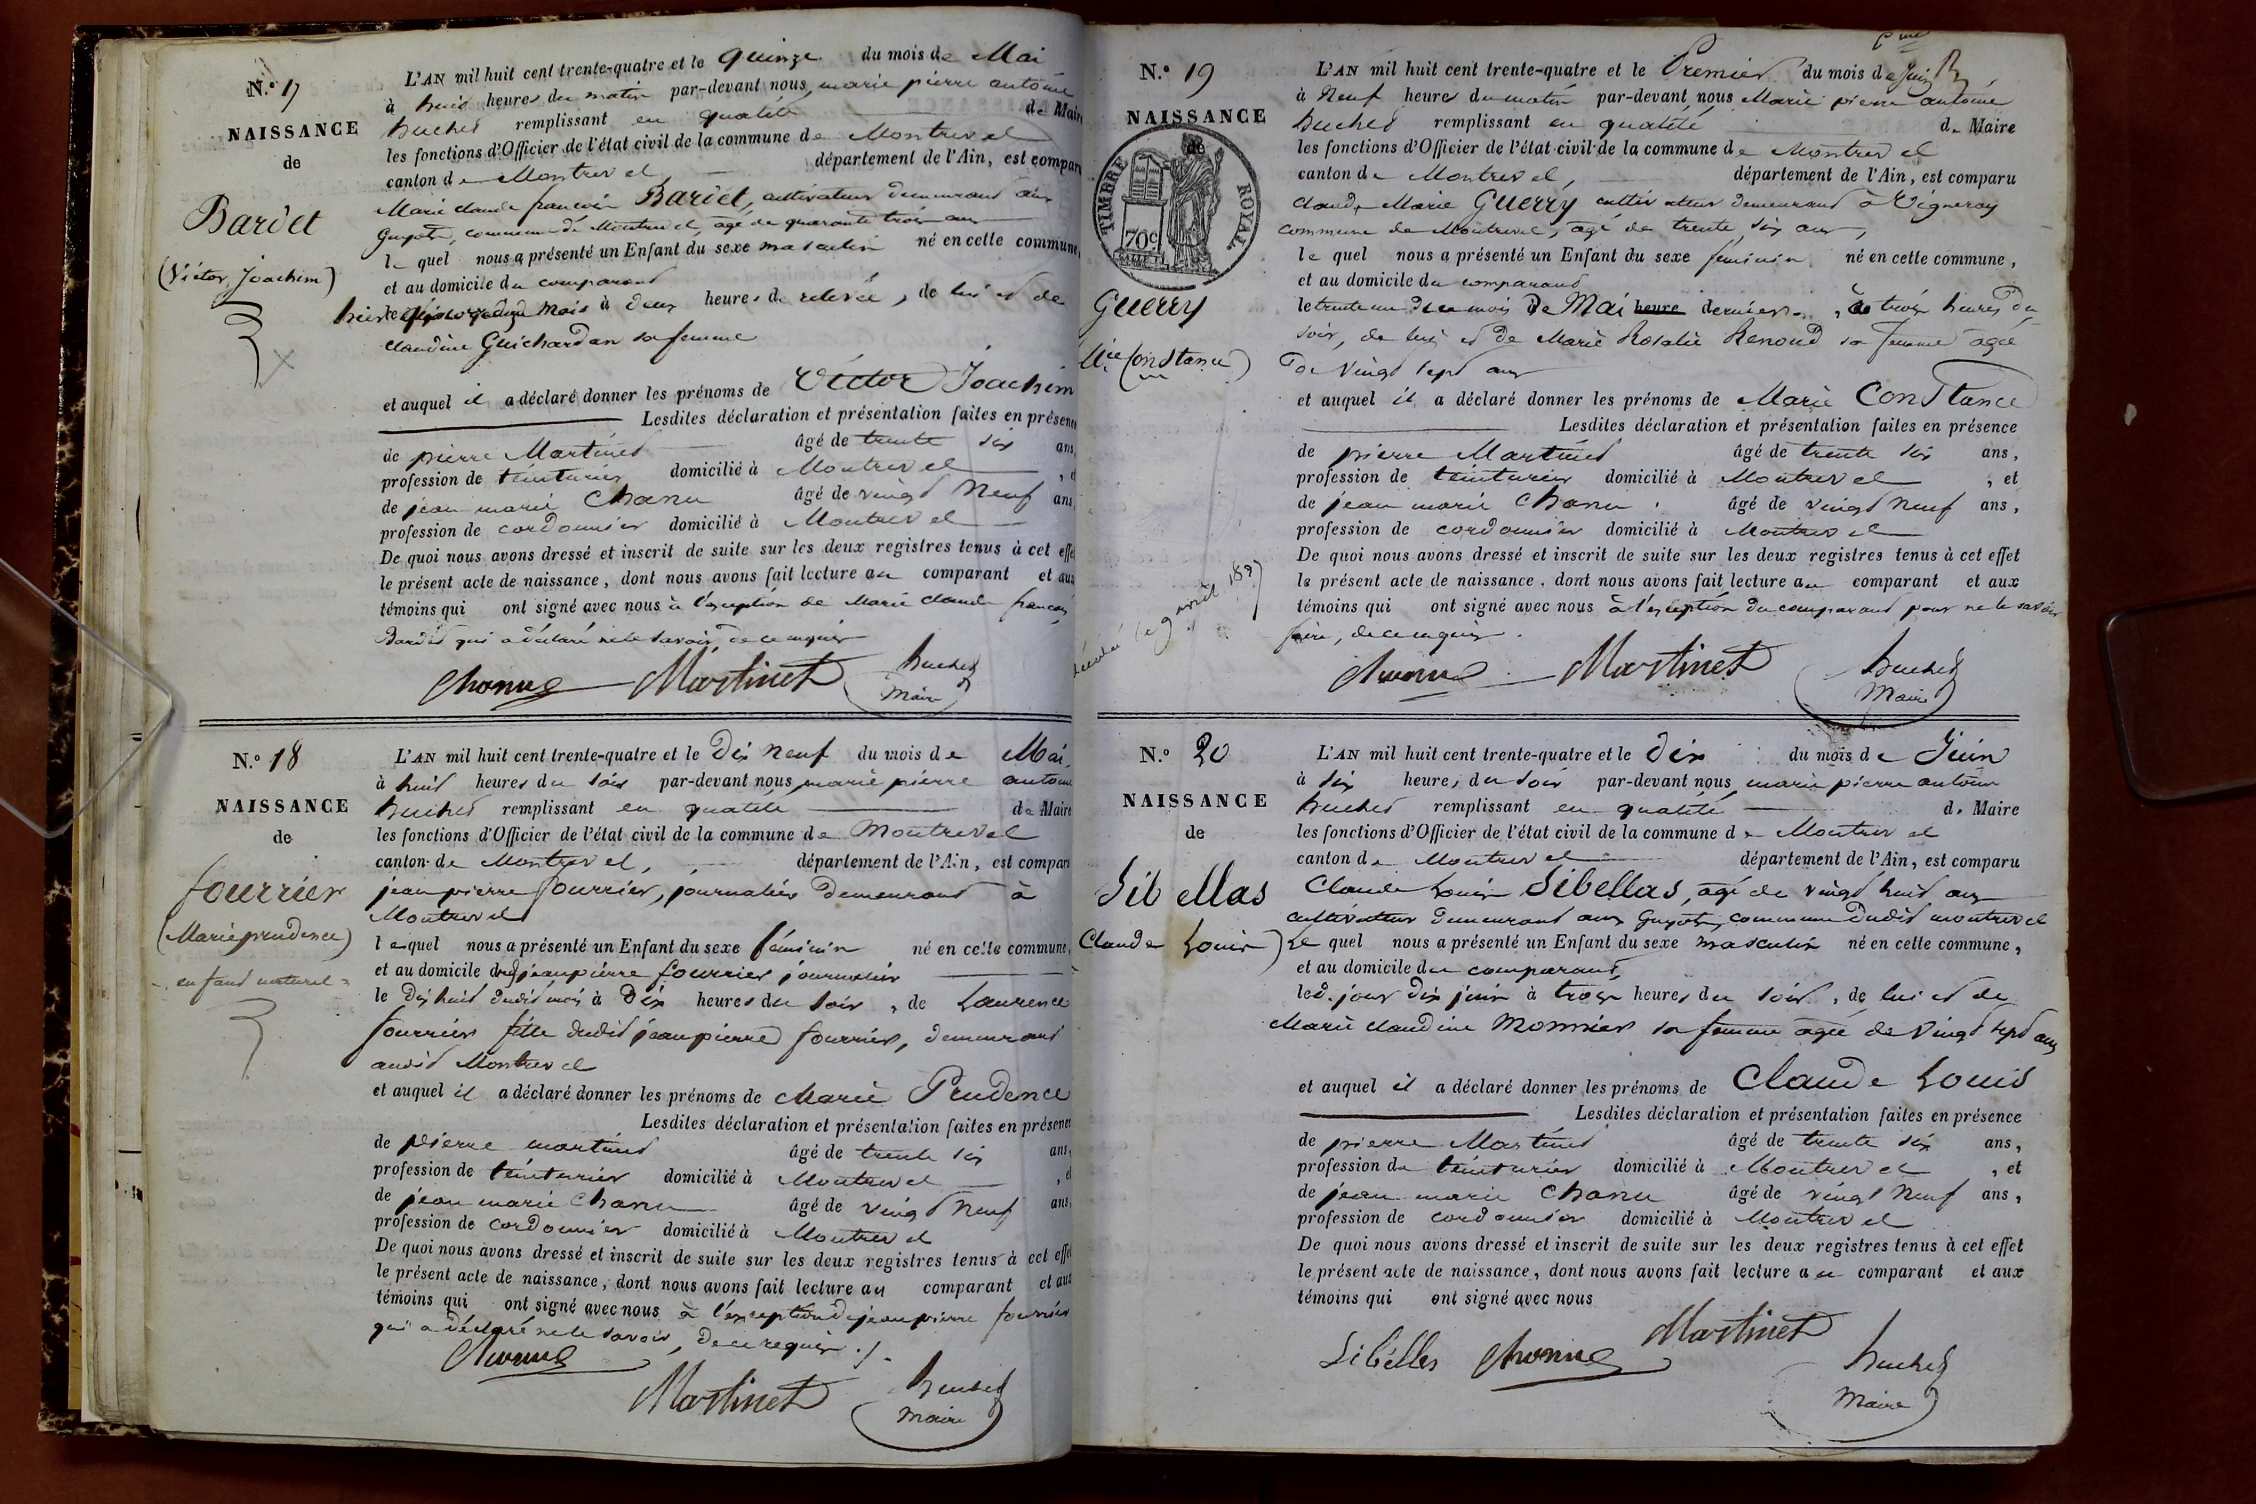 N.° 17
NAISSANCE
de
Bardet
(Victor Joachim)
L'AN mil huit cent trente-quatre et le quinze du mois de Mai
à huit heures du matin par-devant nous marie pierre antoine
huchet remplissant en qualité de Maire
les fonctions d'Officier de l'état civil de la commune de Montrevel
canton de Montrevel, département de l'Ain, est comparu
Marie claude francois Bardet, cultivateur demeurant aux
Guyots, commune de Montrevel, agé de quarante trois ans
le quel nous a présenté un Enfant du sexe masculin né en cette commune,
et au domicile du comparant
hier du mois à deux heures de relevée, de lui et de
claudine Guichardan sa femme
et auquel il a déclaré donner les prénoms de Victor Joachim
Lesdites déclaration et présentation faites en présence
de pierre Martinet âgé de trente six ans,
profession de teinturier domicilié à Montrevel, et
de jean marie Chanu âgé de vingt neuf ans,
profession de cordonnier domicilié à Montrevel
De quoi nous avons dressé et inscrit de suite sur les deux registres tenus à cet effet
le présent acte de naissance, dont nous avons fait lecture au comparant et aux
témoins qui ont signé avec nous à l'exception de Marie claude francois
Bardet qui a déclaré ne le savoir, de ce requis
Martinet huchet
Maire
N.° 18
NAISSANCE
de
fourrier
(Marie prudence)
enfant naturel
L'AN mil huit cent trente-quatre et le Dix neuf du mois de Mai
à huit heures du soir par-devant nous marie pierre antoine
huchet remplissant en qualité de Maire
les fonctions d'Officier de l'état civil de la commune de Montrevel
canton de Montrevel, département de l'Ain, est comparu
jean pierre fourrier, journalier demeurant à
Montrevel
lequel nous a présenté un Enfant du sexe féminin né en cette commune,
et au domicile dudt jean pierre fourrier journalier
le Dix huit dudit mois à Dix heures du soir, de Laurence
fourrier fille dudit jean pierre fourrier, demeurant
audit Montrevel
et auquel il a déclaré donner les prénoms de Marie Prudence
Lesdites déclaration et présentation faites en présence
de pierre martinet âgé de trente six ans,
profession de teinturier domicilié à Montrevel, et
de jean marie Chanu âgé de vingt neuf ans,
profession de cordonnier domicilié à Montrevel
De quoi nous avons dressé et inscrit de suite sur les deux registres tenus à cet effet
le présent acte de naissance, dont nous avons fait lecture au comparant et aux
témoins qui ont signé avec nous à l'exception de jean pierre fourrier
qui a déclaré ne le savoir, de ce requis ./.
Martinet huchet
maire
N.° 19
NAISSANCE
de
TIMBRE ROYAL
70c
Guerry
Mie Constance)
décédé le 9 avril
L'AN mil huit cent trente-quatre et le Premier du mois de Juin
à Neuf heures du matin par-devant nous Marie pierre antoine
huchet remplissant en qualité de Maire
les fonctions d'Officier de l'état civil de la commune de Montrevel
canton de Montrevel, département de l'Ain, est comparu
Claude Marie Guerry cultivateur demeurant à Vigneroy
commune de Montrevel, agé de trente six ans,
le quel nous a présenté un Enfant du sexe feminin né en cette commune,
et au domicile du comparant
le trente un du mois de Mai heure dernier, à trois heures du
soir, de lui et de Marie Rosalie Renoud sa femme agée
de vingt sept ans
et auquel il a déclaré donner les prénoms de Marie Constance
Lesdites déclaration et présentation faites en présence
de pierre Martinet âgé de trente six ans,
profession de teinturier domicilié à Montrevel, et
de jean marie Chanu âgé de vingt neuf ans,
profession de cordonnier domicilié à Montrevel
De quoi nous avons dressé et inscrit de suite sur les deux registres tenus à cet effet
le présent acte de naissance, dont nous avons fait lecture au comparant et aux
témoins qui ont signé avec nous à l'exception du comparant pour ne le savoir
faire, de ce requis.
Martinet huchet
Maire
N.° 20
NAISSANCE
de
Sibellas
Claude Louis)
L'AN mil huit cent trente-quatre et le dix du mois de Juin
à six heures du soir par-devant nous marie pierre antoine
huchet remplissant en qualité de Maire
les fonctions d'Officier de l'état civil de la commune de Montrevel
canton de Montrevel département de l'Ain, est comparu
Claude Louis Sibellas, agé de vingt huit ans
cultivateur demeurant aux Guyots, commune dudit montrevel
Le quel nous a présenté un Enfant du sexe masculin né en cette commune,
et au domicile du comparant,
led. jour dix juin à trois heures du soir, de lui et de
Marie claudine Monnier sa femme agée de vingt sept ans
et auquel il a déclaré donner les prénoms de Claude Louis
Lesdites déclaration et présentation faites en présence
de pierre Martinet âgé de trente six ans,
profession de teinturier domicilié à Montrevel, et
de jean marie Chanu âgé de vingt neuf ans,
profession de cordonnier domicilié à Montrevel
De quoi nous avons dressé et inscrit de suite sur les deux registres tenus à cet effet
le présent acte de naissance, dont nous avons fait lecture au comparant et aux
témoins qui ont signé avec nous
Sibélles Martinet huchet
Maire